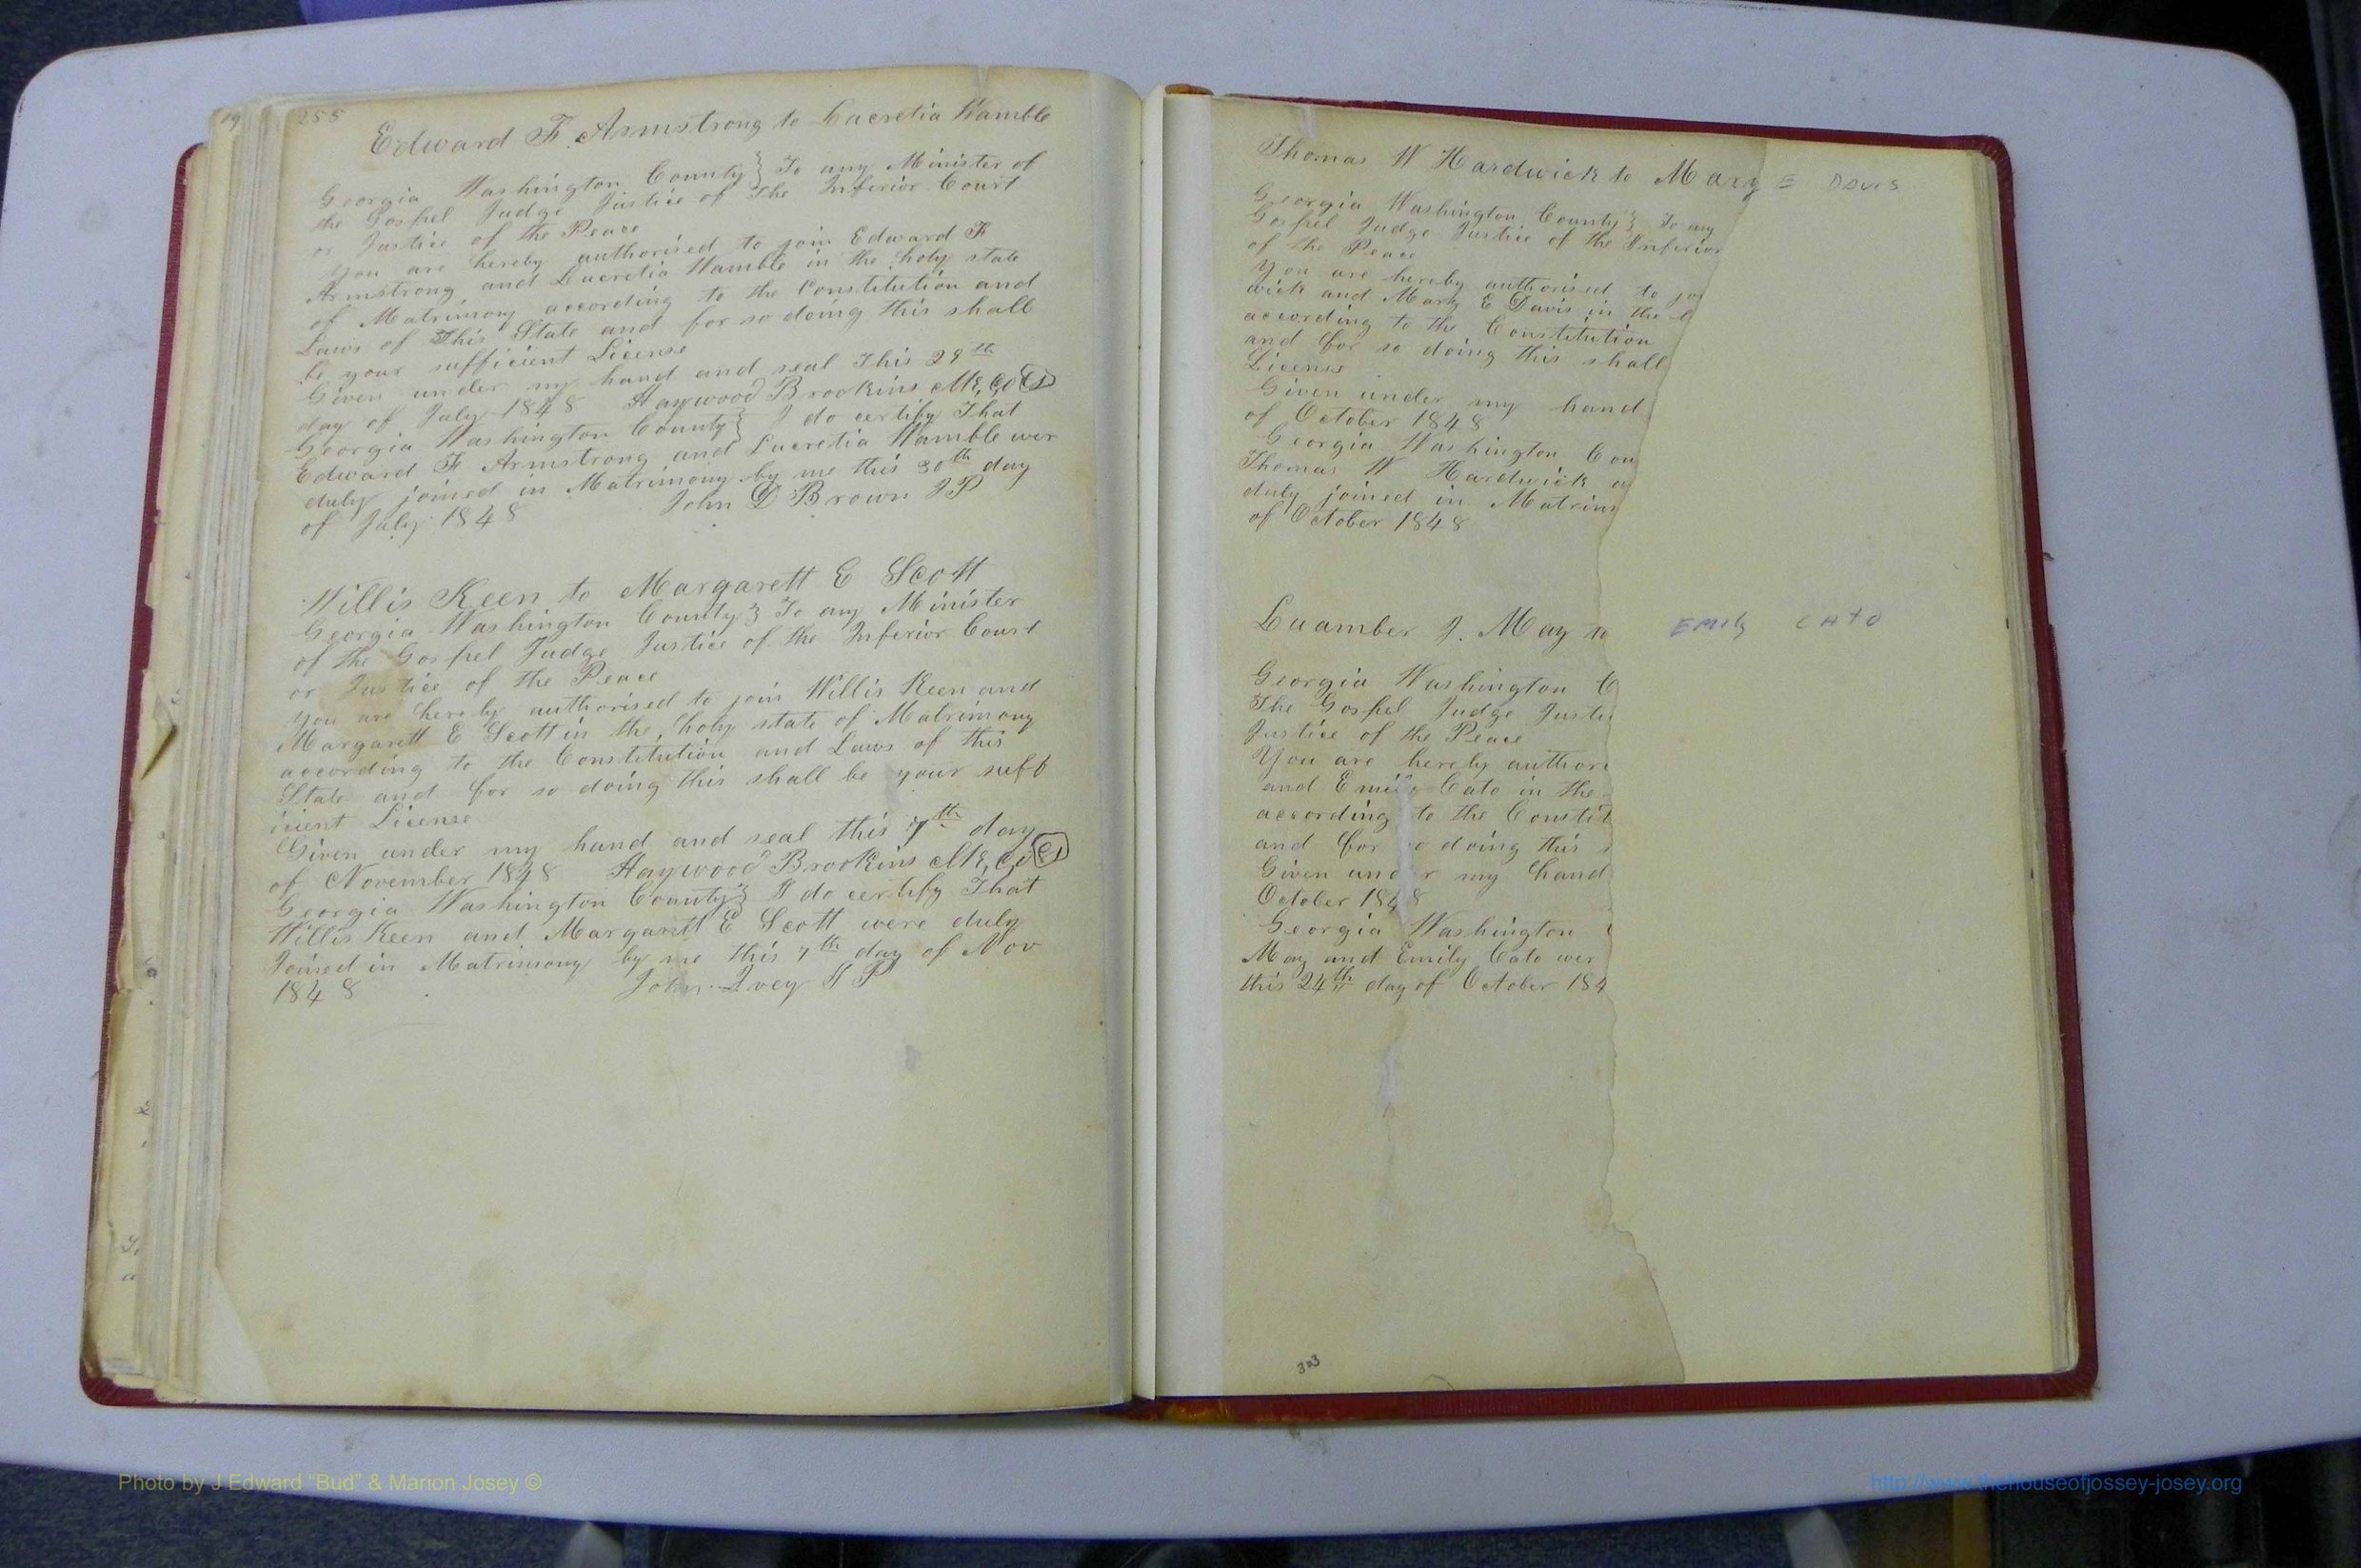 255
Edward F. Armstrong to Lucretia Wamble
Georgia Washington County } To any Minister of
the Gospel Judge Justice of The Inferior Court
or Justice of the Peace
You are hereby authorised to join Edward F
Armstrong and Lucretia Wamble in the holy state
of Matrimony according to the Constitution and
Laws of This State and for so doing this shall
be your sufficient License
Given under my hand and seal This 29th
day of July 1848 Haywood Brookins
Georgia Washington County } I do certify That
Edward F Armstrong and Lucretia Wamble wer
duly joined in Matrimony by me this 30th day
of July 1848 John D Brown JP
Willis Keen to Margarett E Scott
Georgia Washington County } To any Minister
of the Gospel Judge Justice of the Inferior Court
or Justice of the Peace
You are hereby authorised to join Willis Keen and
Margarett E Scott in the holy state of Matrimony
according to the Constitution and Laws of this
State and for so doing this shall be your suff
icient License
Given under my hand and seal this 7th day
of November 1848 Haywood Brookins
Georgia Washington County } I do certify That
Willis Keen and Margarett E Scott were duly
Joined in Matrimony by me this 7th day of Nov
1848 John Ivey JP
Thomas W Hardwick to Mary E Davis
Georgia Washington County } To any
Gospel Judge Justice of the Inferior
of the Peace
You are hereby authorised to jo
wick and Mary E Davis in the
according to the Constitution
and for so doing this shall
License
Given under my hand
of October 1848
Georgia Washington Cou
Thomas W Hardwick
duly joined in Matrim
of October 1848
Luamber J. May to Emily Cato
Georgia Washington C
The Gospel Judge Justi
Justice of the Peace
You are hereby authori
and Emily Cato in the
according to the Constit
and for so doing this
Given under my hand
October 1848
Georgia Washington
May and Emily Cato wer
this 24th day of October 184
303
Photo by J Edward "Bud" & Marion Josey ©
http://www.thehouseofjossey-josey.org